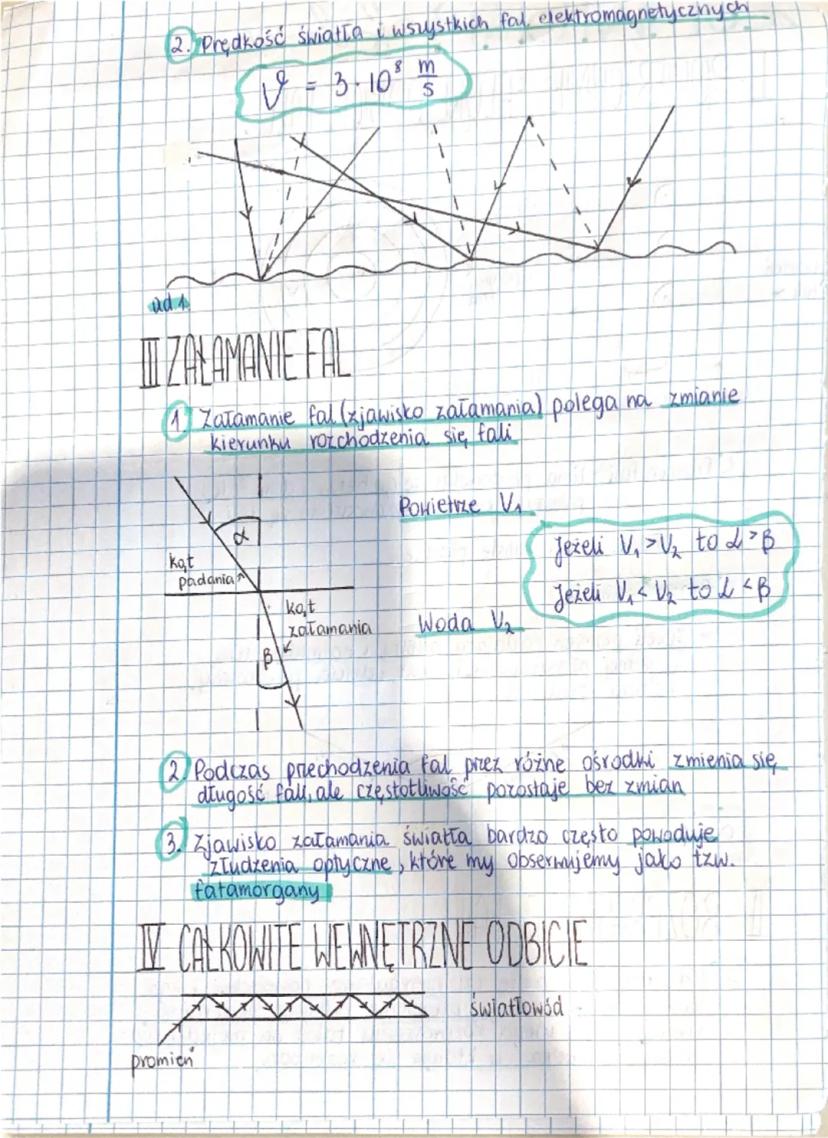 2. Prędkość światła i wszystkich fal elektromagnetycznych
V = 3·10⁸ m/s
ad 1.
III ZAŁAMANIE FAL
1. Załamanie fal (zjawisko załamania) polega na zmianie
kierunku rozchodzenia się fali
Powietrze V₁
α
Jeżeli V₁ > V₂ to α > β
kąt
padania
Jeżeli V₁ < V₂ to α < β
kąt
załamania
Woda V₂
β
2. Podczas przechodzenia fal przez różne ośrodki zmienia się
długość fali, ale częstotliwość pozostaje bez zmian
3. Zjawisko załamania światła bardzo często powoduje
złudzenia optyczne, które my obserwujemy jako tzw.
fatamorgany
IV CAŁKOWITE WEWNĘTRZNE ODBICIE
światłowód
promień